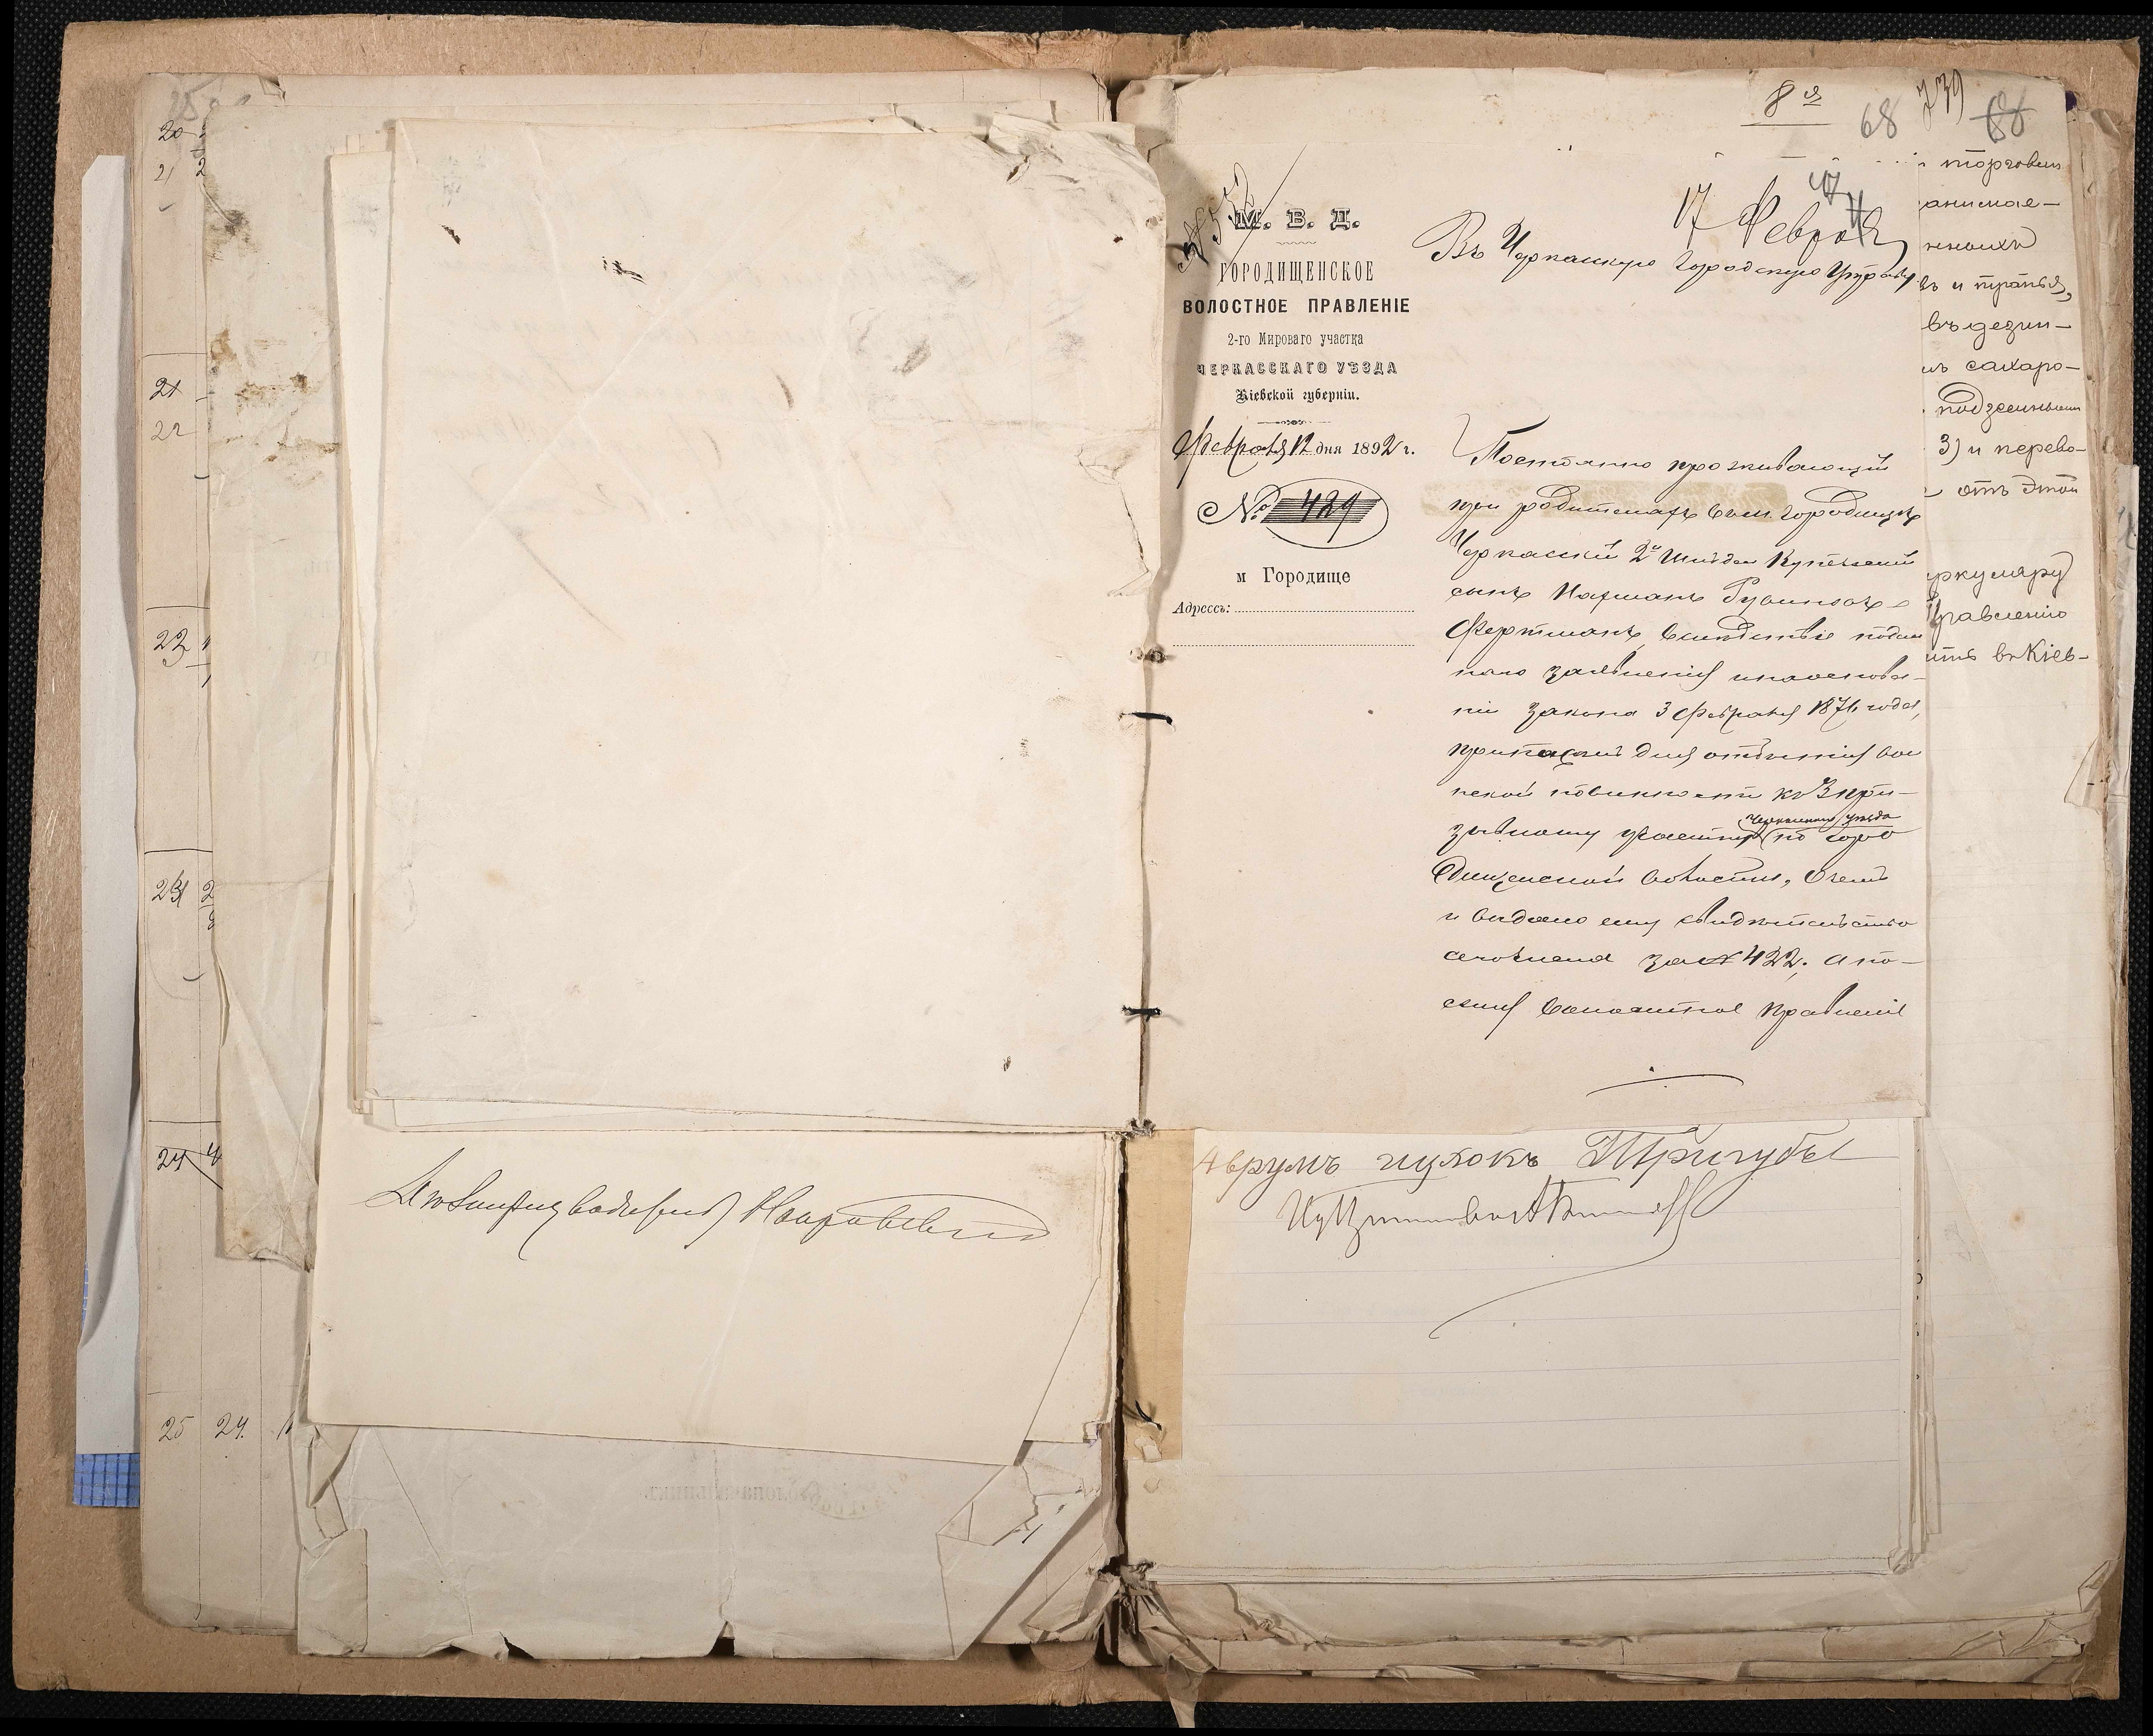 20
21 2
21
22
23
24 2
24
25 24.
8я
68 739 68
М. В. Д.
ГОРОДИЩЕНСКОЕ
ВОЛОСТНОЕ ПРАВЛЕНІЕ
2-го Мироваго участка
ЧЕРКАССКАГО УѢЗДА
Кіевской губерніи.
Февраля 12 дня 1892 г.
№ 429
м Городище
Адрессъ:
17 Февраля
Въ Черкасскую Городскую Управу
Постоянно проживающій
при родителяхъ въ м. Городищѣ
Черкасскій 2й Гильдіи Купеческій
сынъ Нахманъ Рувиновъ
Фертманъ, вслѣдствіе подан
наго заявленія и на основа-
ніи закона 3 Февраля 1876 года,
приписанъ для отбытія воин
ской повинности къ 3 при-
зывному участку Черкасскаго уѣзда по Горо
дищенской волости, о чемъ
и выдано ему свидѣтельство
сего числа за № 422; а по-
сему Волостное Правленіе
торговли
анимае-
нныхъ
въ и тряпья,
въ дезин-
сахаро-
подземными
3) и перево-
отъ этой
ркуляру
Правленію
ить въ Кіев-
Аврумъ Ицхокъ Тригубы